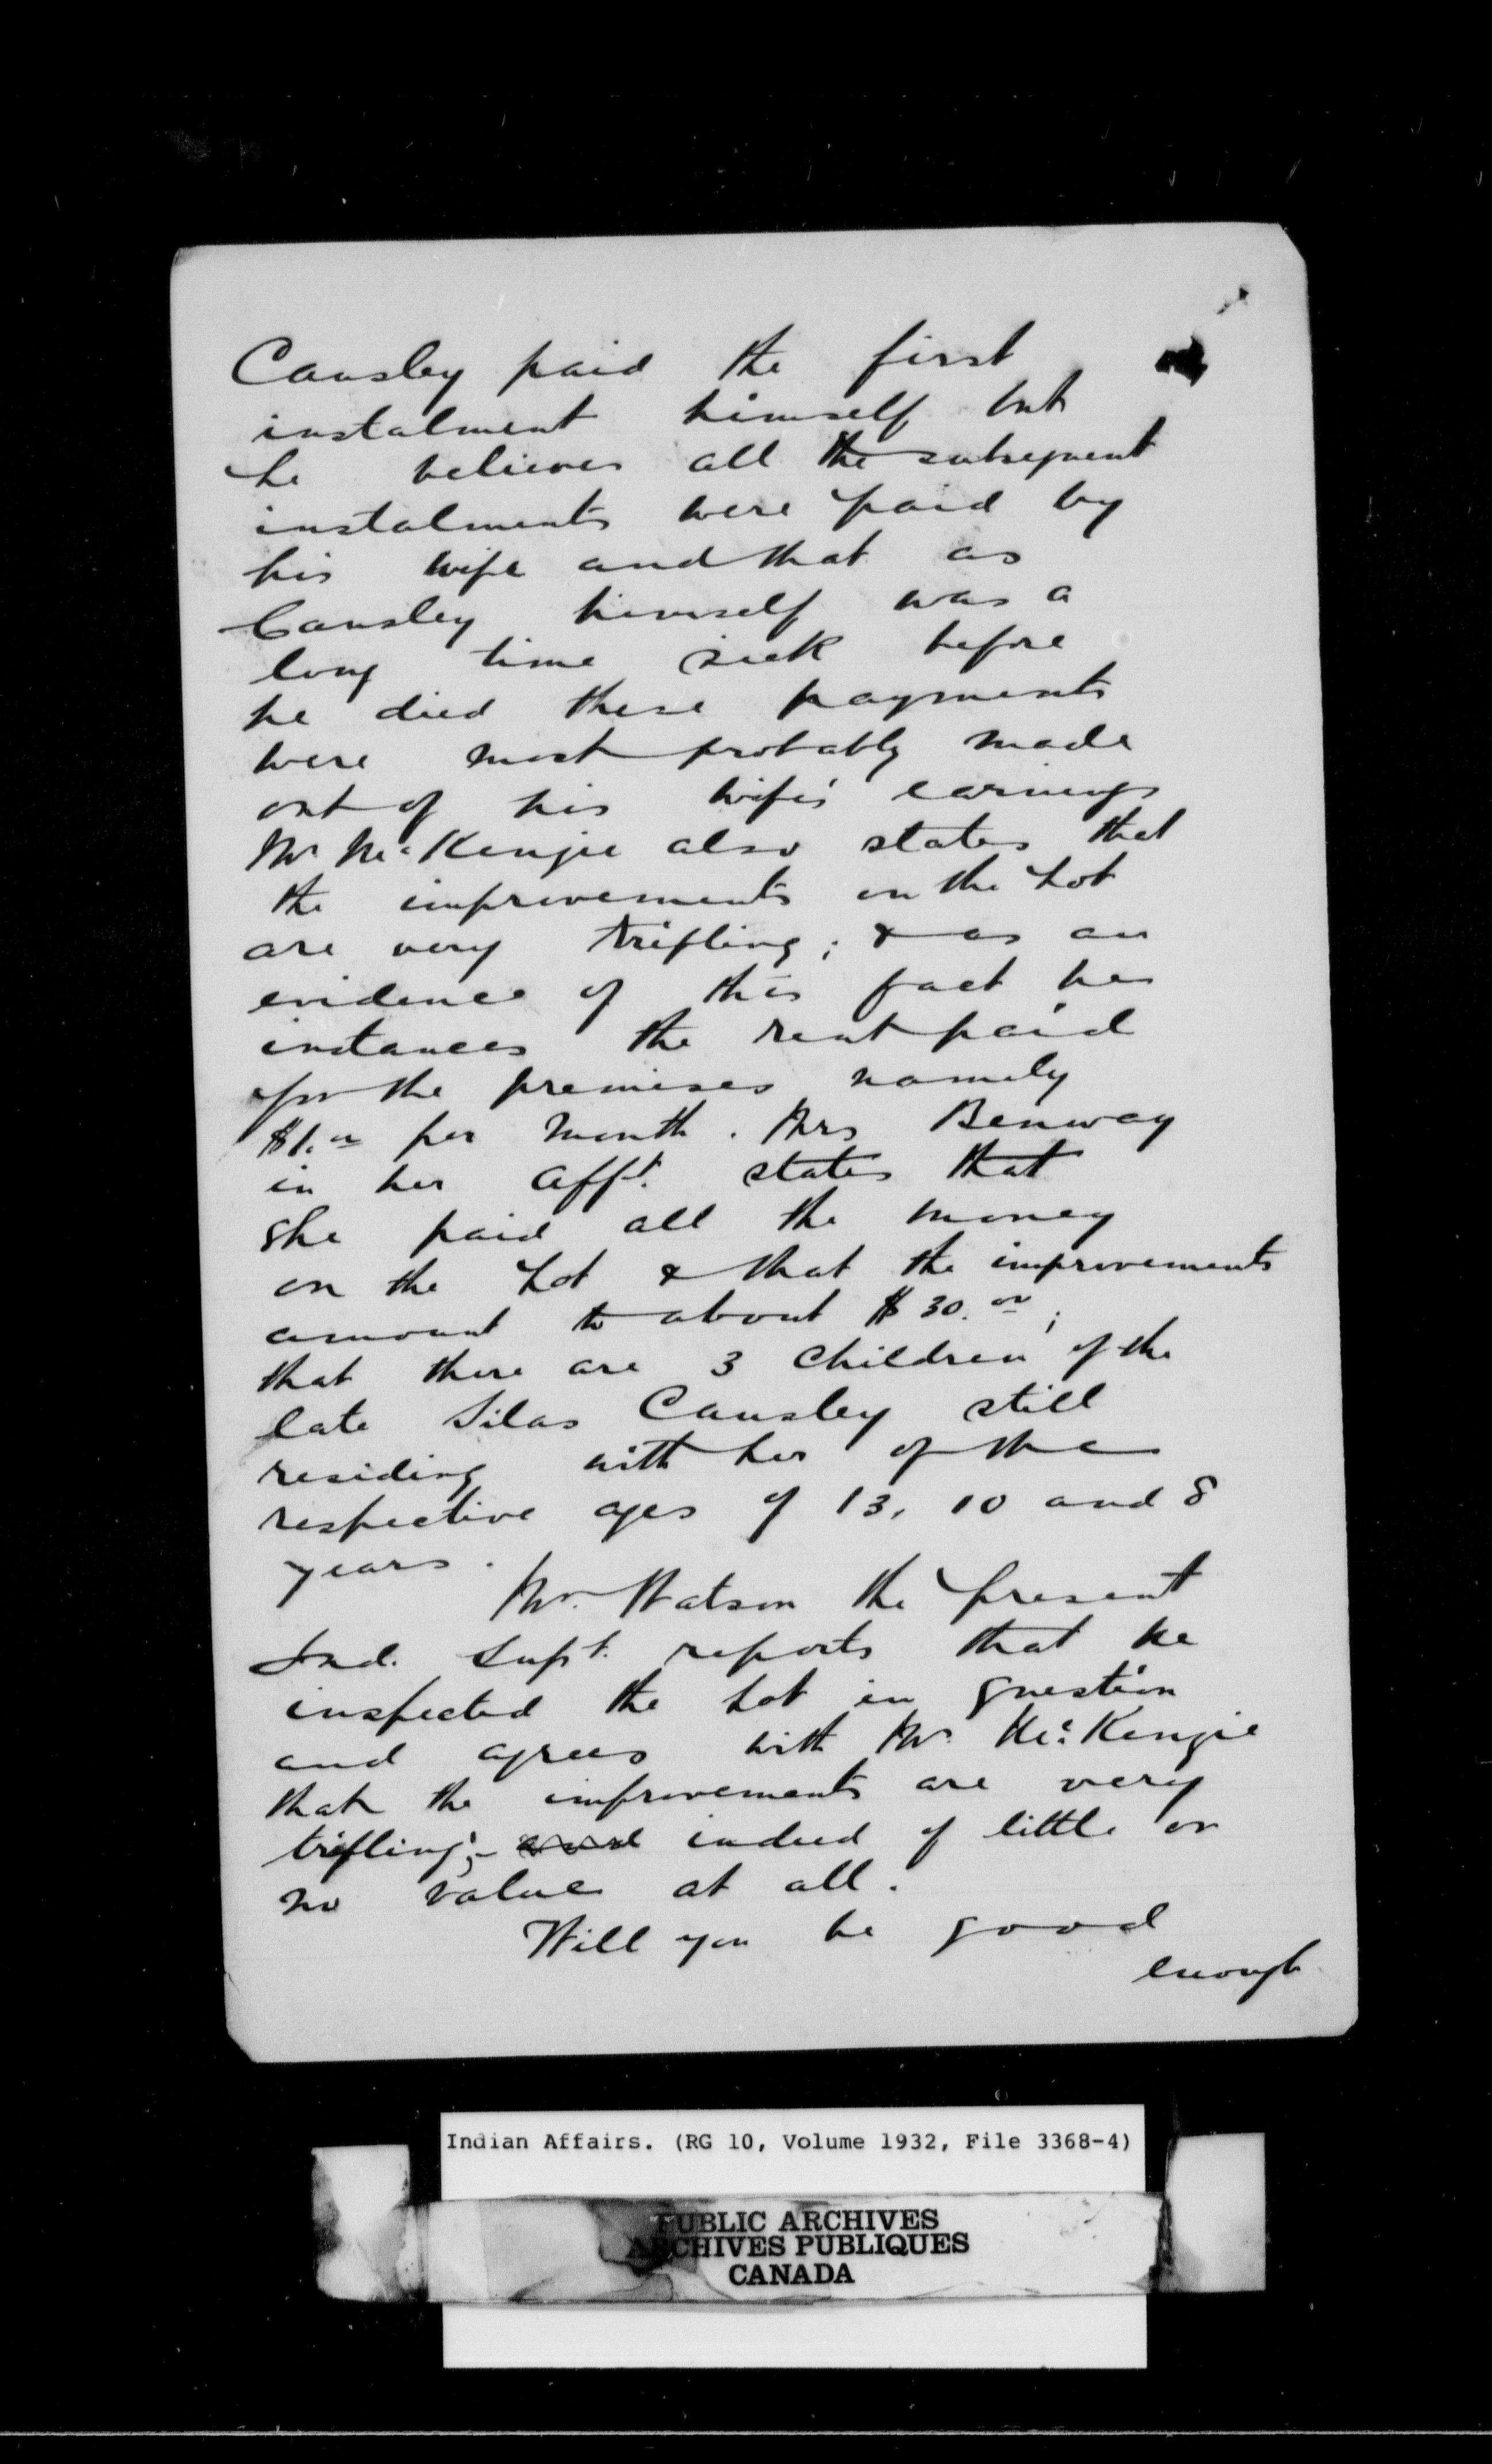 Causley paid the first
instalment himself but
he believes all the subsequent
instalments were paid by
his wife and that as
Causley himself was a
long time sick before
he died these payments
were most probably made
out of his wife's earnings
Mr. McKenzie also states that
the improvements on the Lot
are very trifling; & as an
evidence of this fact he
instances the rent paid
for the premises namely
$1.00 per month. Mrs Benway
in her afft. states that
she paid all the money
on the Lot & that the improvements
amount to about $30.00;
that there are 3 children of the
late Silas Causley still
residing with her of the
respective ages of 13, 10 and 8
years.
Mr. Watson the present
Ind. Supt. reports that he
inspected the Lot in question
and agrees with Mr. McKenzie
that the improvements are very
trifling;- and indeed of little or
no value at all.
Will you be good
enough
Indian Affairs. (RG 10, Volume 1932, File 3368-4)
PUBLIC ARCHIVES
ARCHIVES PUBLIQUES
CANADA